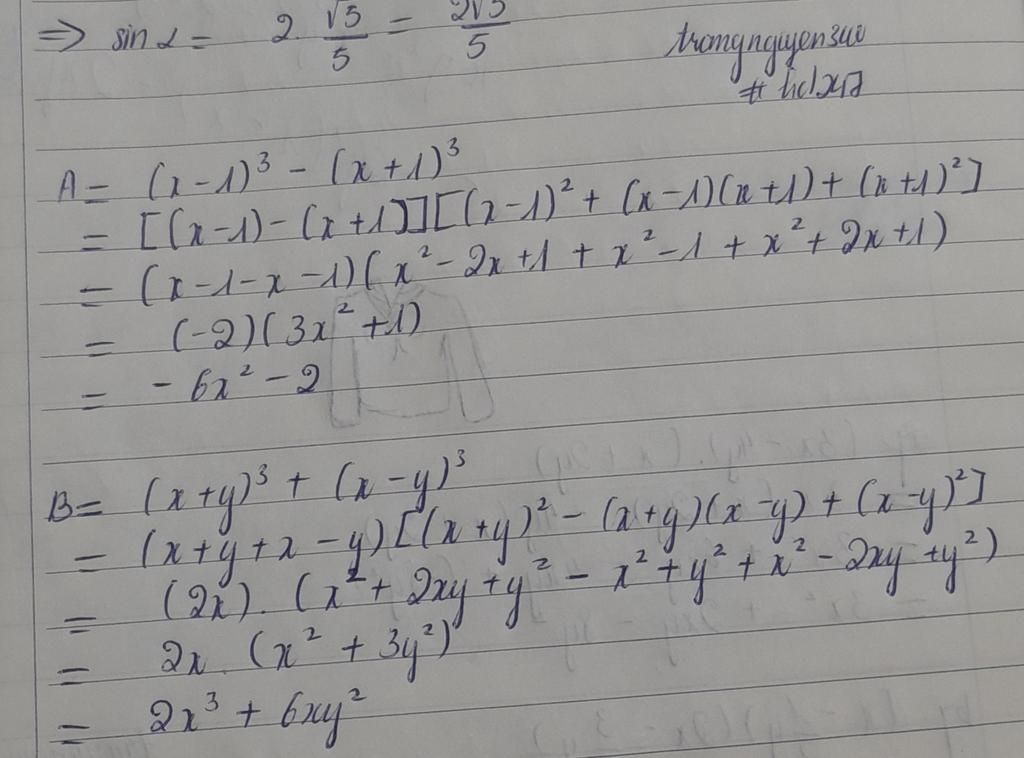 ⇒ sin α = 2. √5/5 = 2√5/5
# hdx17
A = (x-1)³ - (x+1)³
= [(x-1)-(x+1)][(x-1)² + (x-1)(x+1) + (x+1)²]
= (x-1-x-1)(x²-2x+1 + x²-1 + x²+2x+1)
= (-2)(3x²+1)
= -6x²-2
B = (x+y)³ + (x-y)³
= (x+y+x-y)[(x+y)² - (x+y)(x-y) + (x-y)²]
= (2x).(x²+2xy+y² - x²+y²+x²-2xy+y²)
= 2x.(x²+3y²)
= 2x³+6xy²